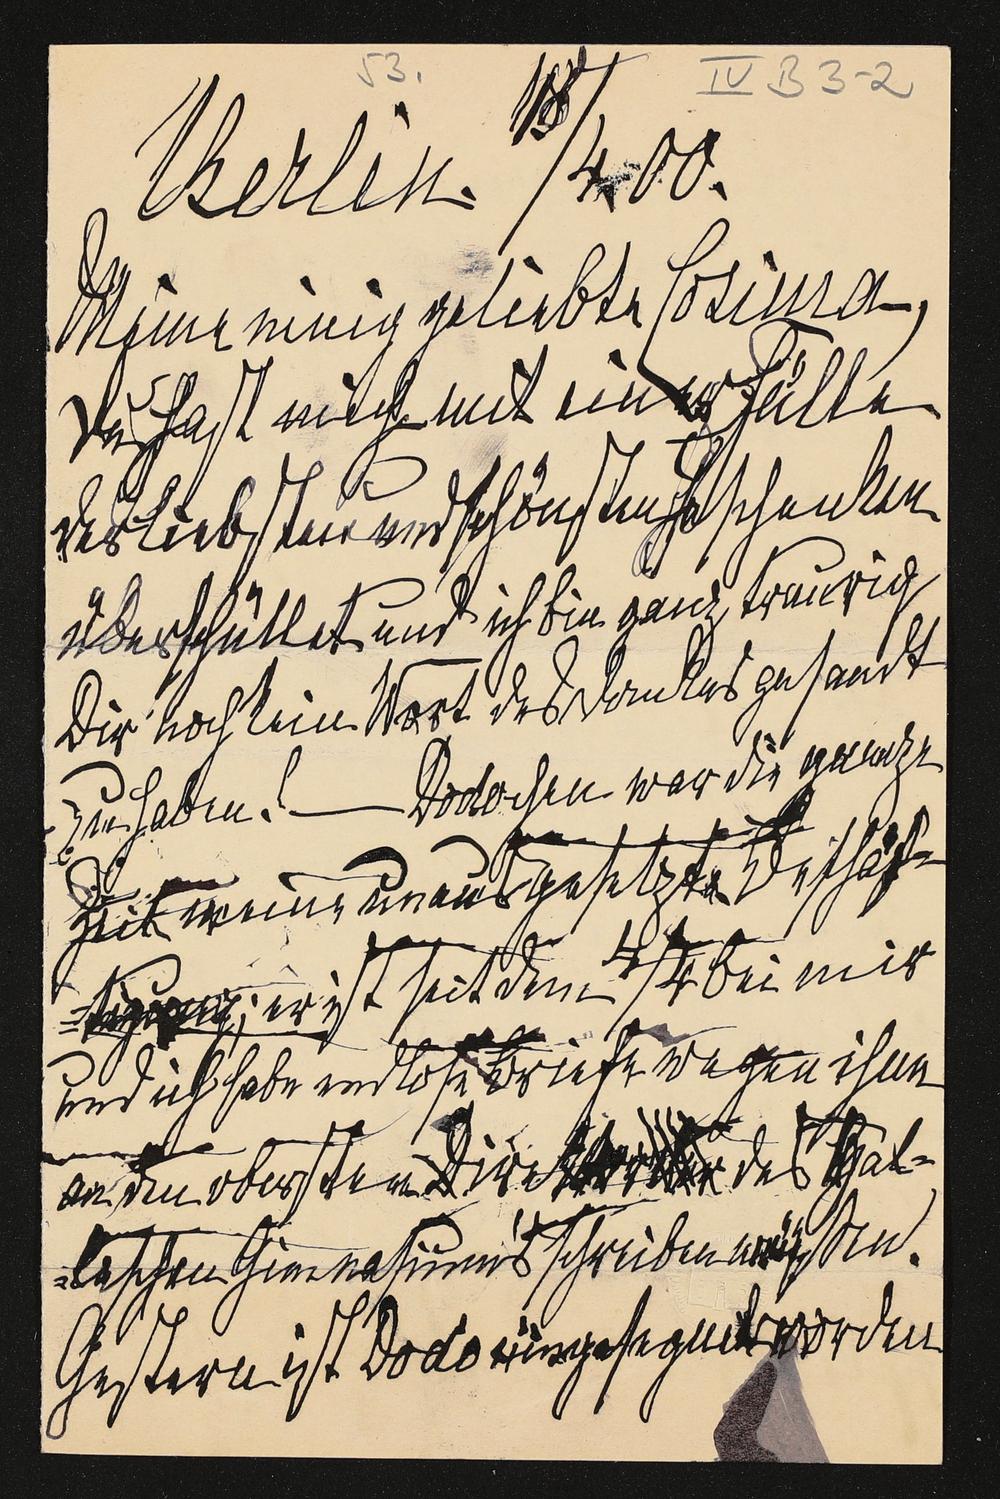 53. IV B 3-2
Berlin. 18/4. 00.
Meine einig geliebte Cosima,
Du hast mich mit einer Fülle
der liebsten und schönsten Geschenken
überschüttet und ich bin ganz traurig
Dir noch kein Wort des Dankes gesandt
zu haben! — Dodochen war die ganze
Zeit meine unausgesetzte Beschäf-
=tigung; er ist seit dem 4/4 bei mir
und ich habe endlose Briefe wegen ihm
an den obersten des Hal-
=leschen Gimnasium's schreiben müssen.
Gestern ist Dodo eingesegnet worden